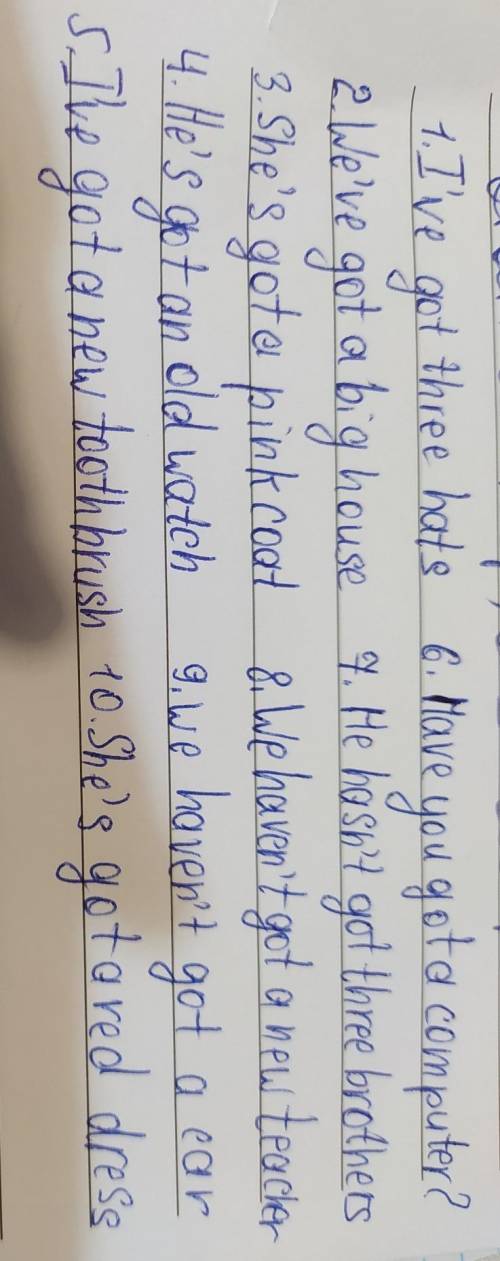 1. I've got three hats 6. Have you got a computer?
2. We've got a big house 7. He hasn't got three brothers
3. She's got a pink coat 8. We haven't got a new teacher
4. He's got an old watch 9. we haven't got a car
5. I've got a new toothbrush 10. She's got a red dress